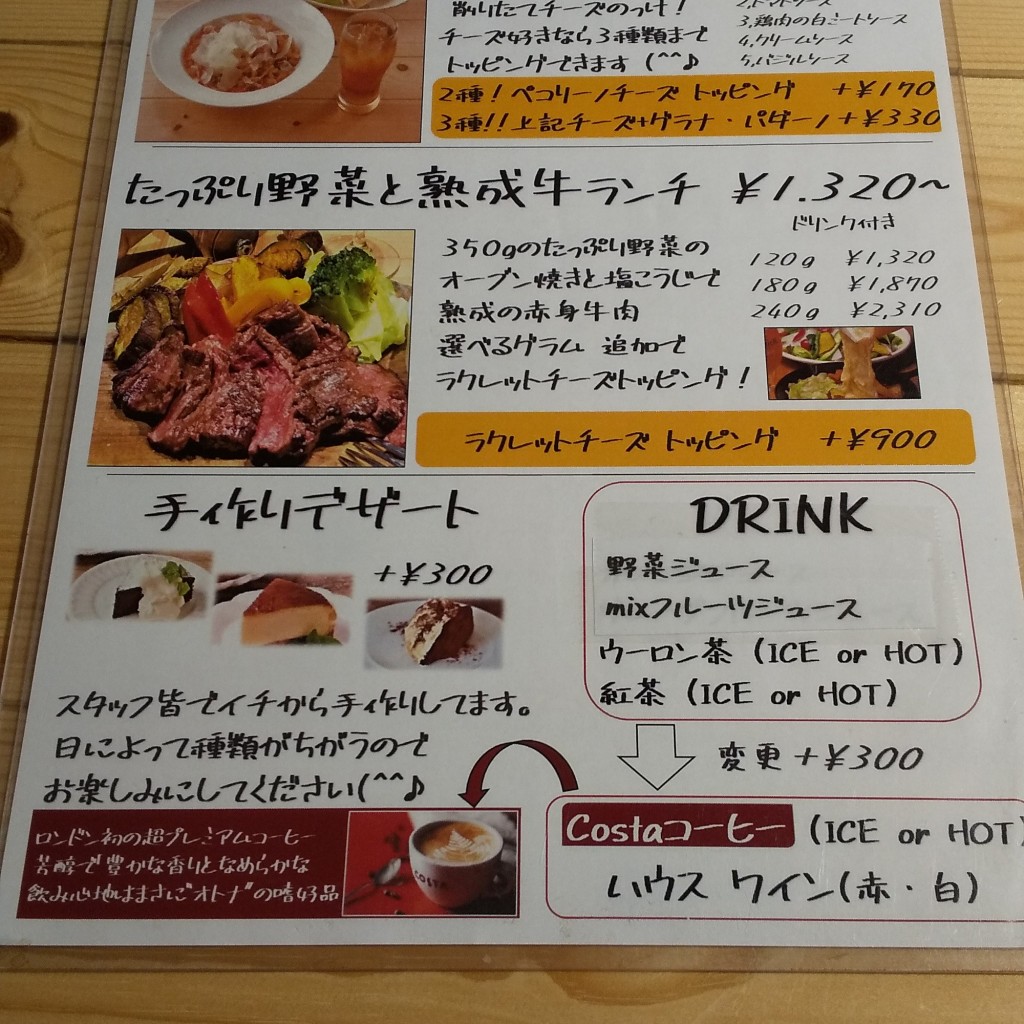 削りたてチーズのっけ!
チーズ好きなら3種類まで
トッピングできます (^^♪
2,トマトソース
3,鶏肉の白ミートソース
4,クリームソース
5,バジルソース
2種!ペコリーノチーズ トッピング +¥170
3種!!上記チーズ+グラナ・パダーノ+¥330
たっぷり野菜と熟成牛ランチ ¥1.320~
ドリンク付き
350gのたっぷり野菜の
オーブン焼きと塩こうじで
熟成の赤身牛肉
選べるグラム 追加で
ラクレットチーズトッピング!
120g ¥1,320
180g ¥1,870
240g ¥2,310
ラクレットチーズ トッピング +¥900
手作りデザート
+¥300
スタッフ皆でイチから手作りしてます。
日によって種類がちがうので
お楽しみにしてください(^^♪
ロンドン初の超プレミアムコーヒー
芳醇で豊かな香りとなめらかな
飲み心地はまさに"オトナ"の嗜好品
COSTA
DRINK
野菜ジュース
mixフルーツジュース
ウーロン茶 (ICE or HOT)
紅茶 (ICE or HOT)
変更 +¥300
Costaコーヒー (ICE or HOT)
ハウス ワイン(赤・白)